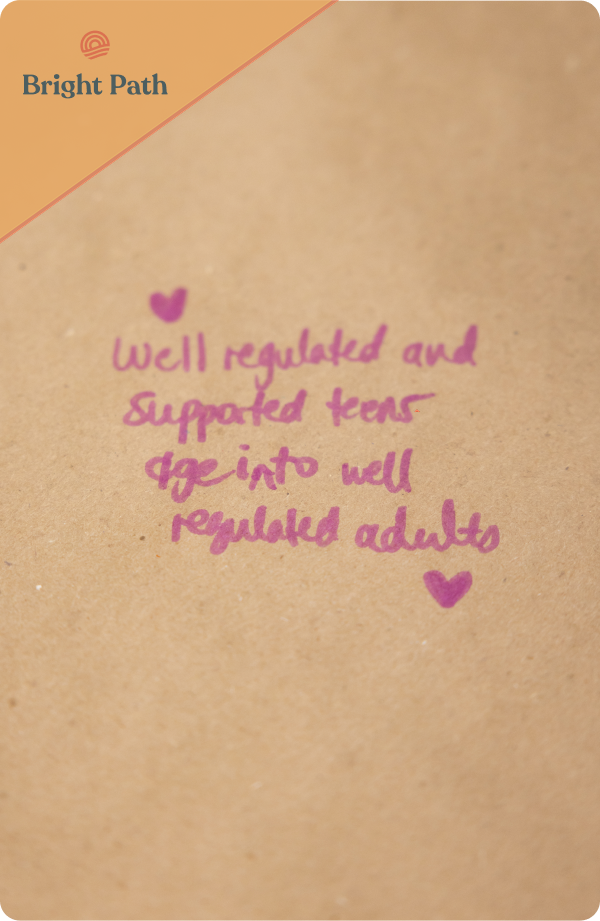 Bright Path
Well regulated and
supported teens
age into well
regulated adults